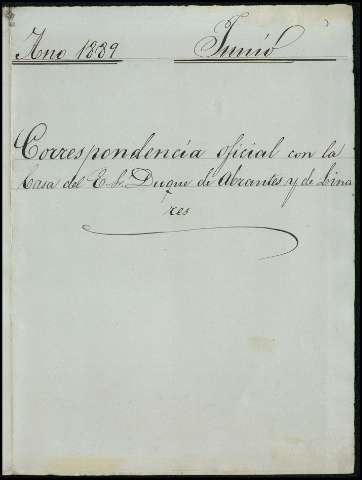 Ano 1889 Junio
Correspondencia oficial con la
Casa del E. S. Duque de Abrantes y de Lina
res